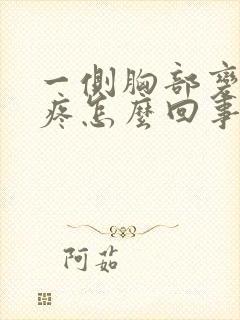 一側胸部變
疼怎麼回事
阿茹